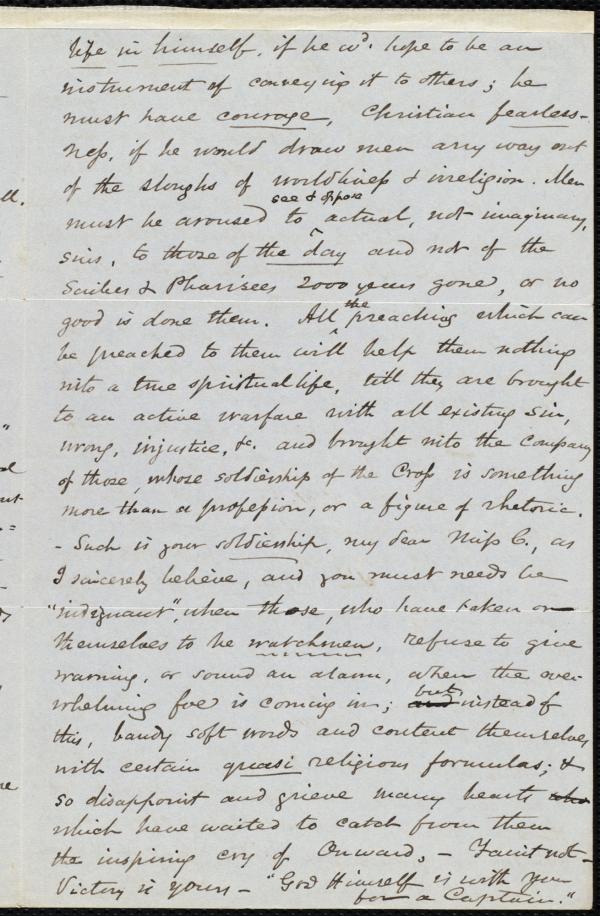 life in himself, if he wd. hope to be an
instrument of conveying it to others; he
must have courage, Christian fearless-
ness, if he would draw men any way out
of the sloughs of worldliness & irreligion. Men
must be aroused to see & oppose actual, not imaginary,
sins, to those of the day and not of the
Scribes & Pharisees 2000 years gone, or no
good is done them. All the preaching which can
be preached to them will help them nothing
into a true spiritual life, till they are brought
to an active warfare with all existing sin,
wrong, injustice, &c. and brought into the company
of those, whose soldiership of the Cross is something
more than a profession, or a figure of rhetoric.
- Such is your soldiership, my dear Miss C., as
I sincerely believe, and you must needs be
"indignant", when those, who have taken on
themselves to be watchmen, refuse to give
warning, or sound an alarm, when the over-
whelming foe is coming in; but instead of
this, bandy soft words and content themselves
with certain quasi religious formulas; &
so disappoint and grieve many hearts who
which have waited to catch from them
the inspiring cry of Onward. - Faint not -
Victory is yours - "God Himself is with you
for a Captain."